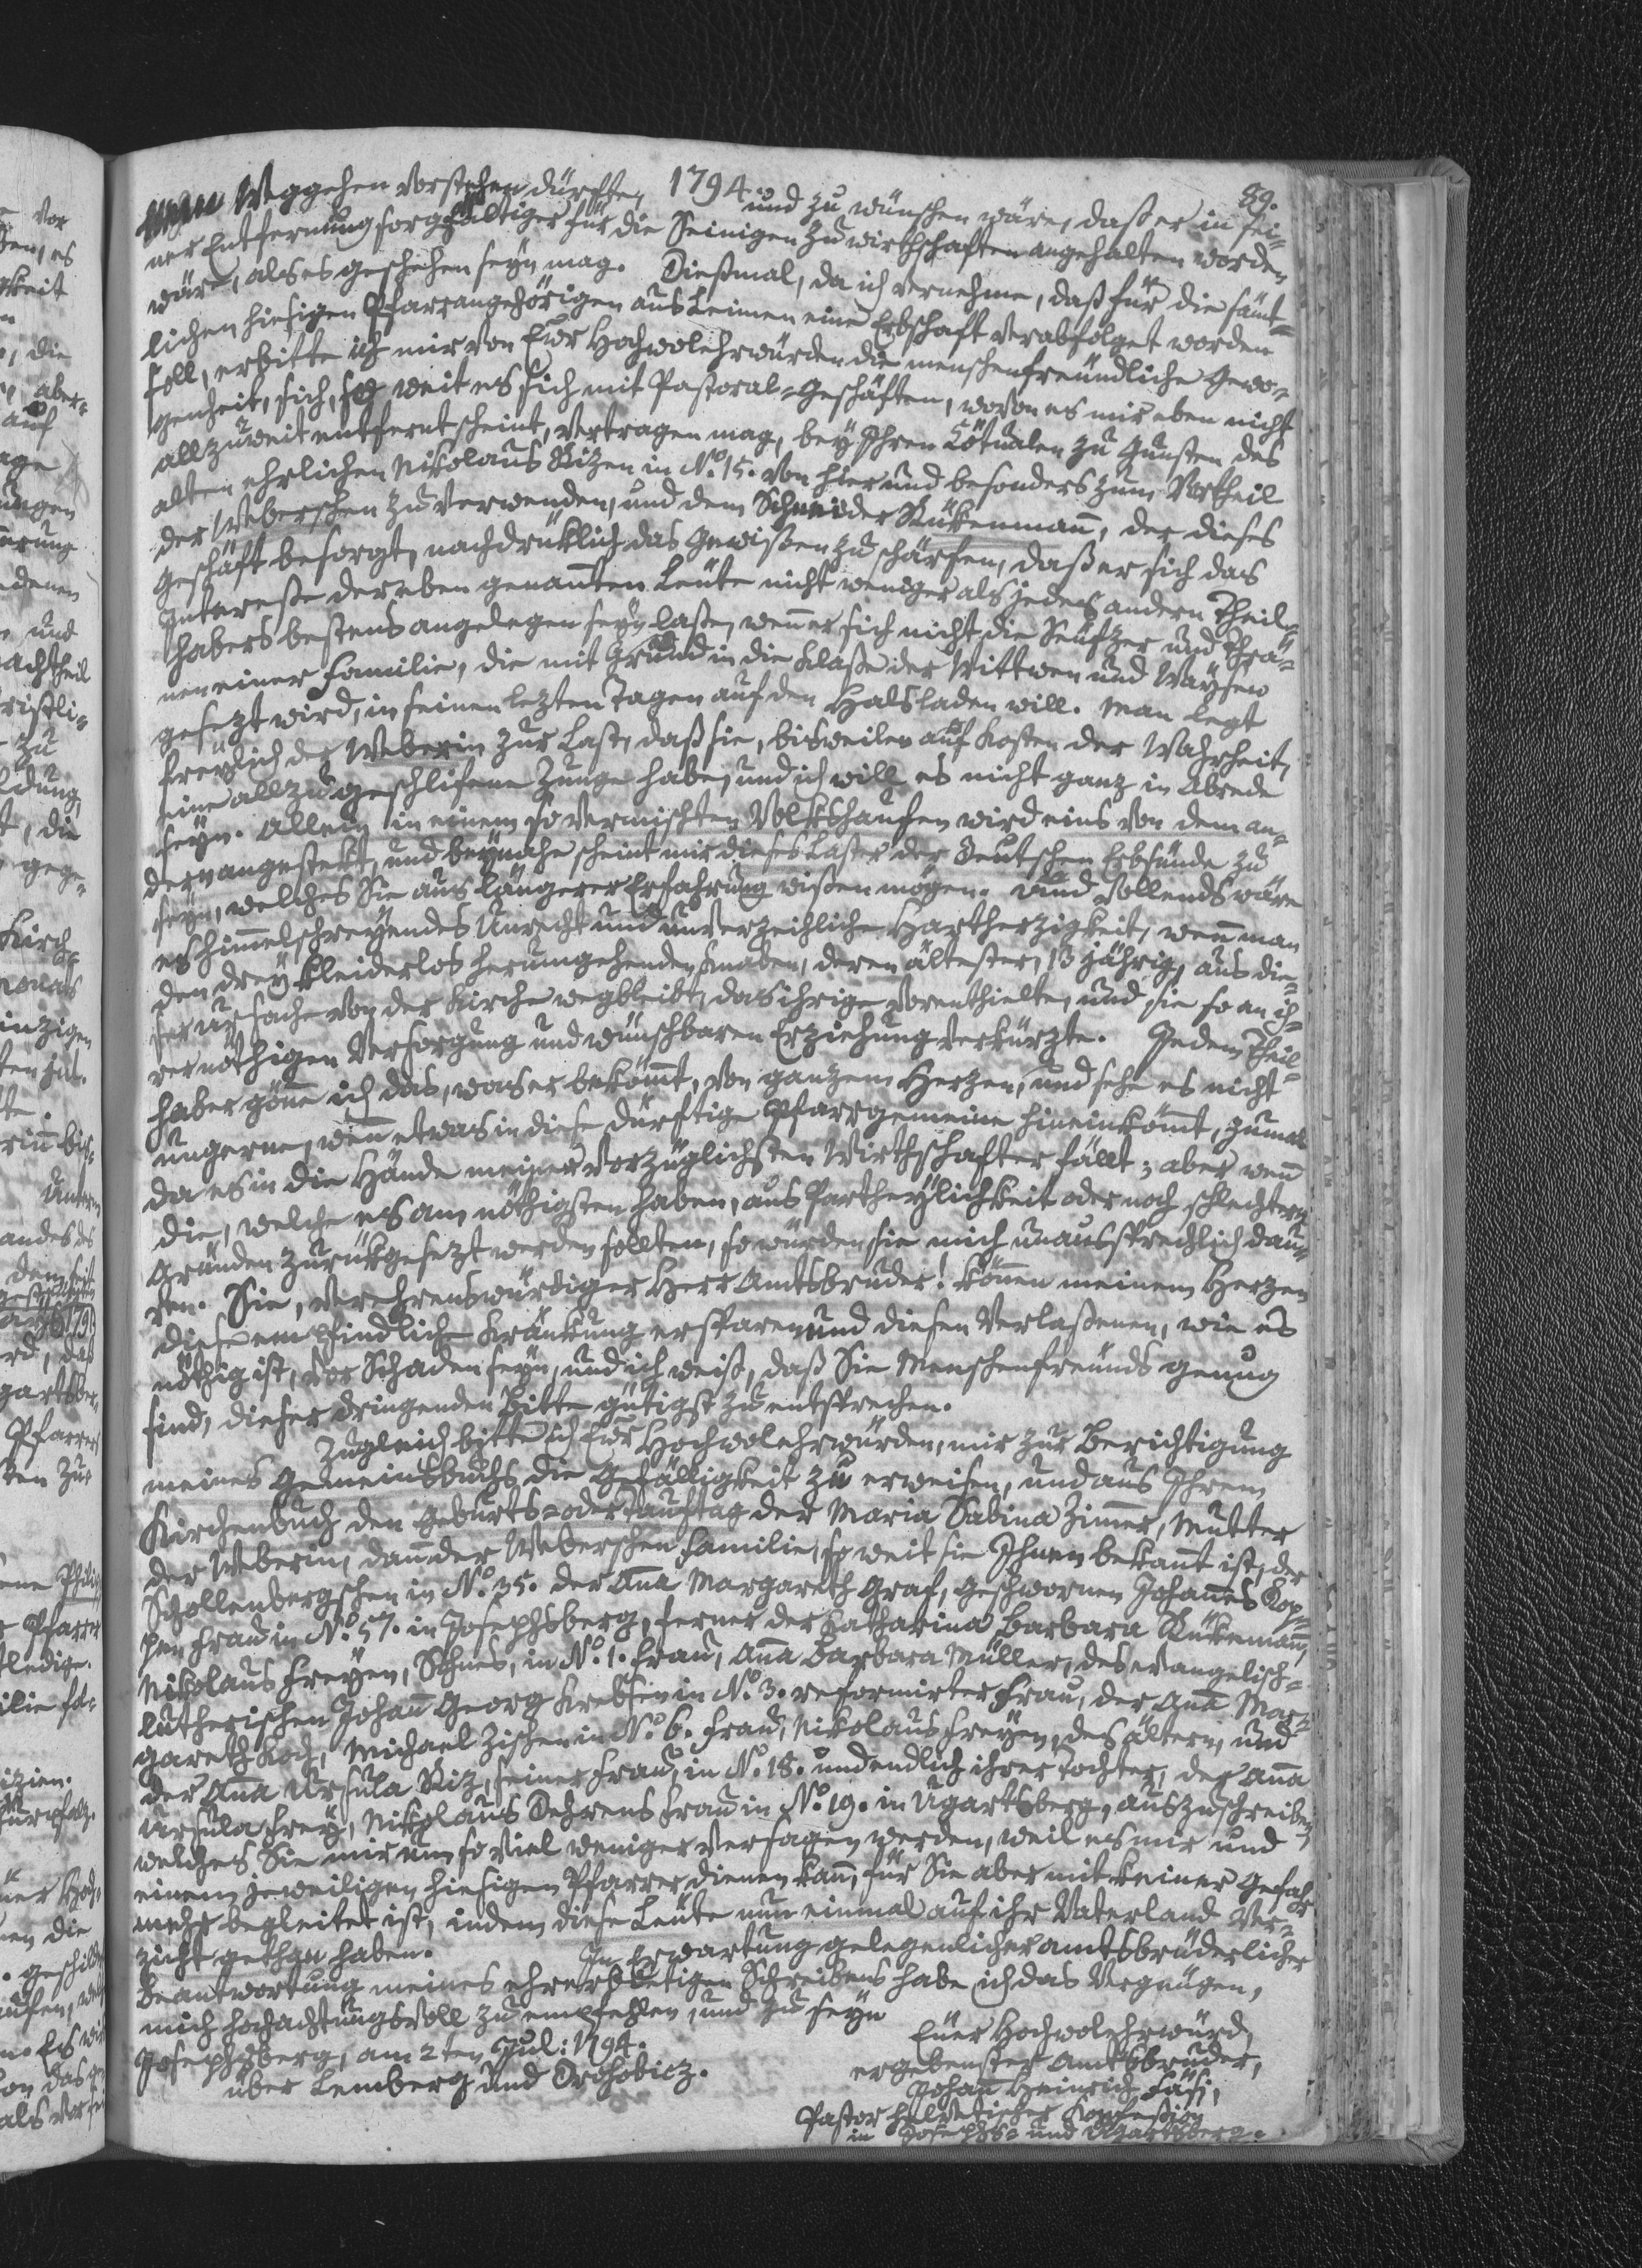 1794.
89.
Weggehen vorstehen dürfte, und zu wünschen wäre, daß er in sei-
ner Entfernung sorgfältiger für die Seinigen zu wirthschaften angehalten worden
wäre, als es geschehen seyn mag. Dießmal, da ich vernehme, daß für die sämt-
lichen hiesigen Pfarrangehörigen aus Leimen eine Erbschaft verabfolget worden
soll, erbitte ich mir von Eür Hochwolehrwürden die menschenfreündliche Gewo-
genheit, sich, so weit es sich mit Pastoral-Geschäften, wovon es mir eben nicht
allzuweit entfernt scheint, vertragen mag, bey Ihren Cötualen zu Gunsten des
alten ehrlichen Nikolaus Rizen in No. 15. von hier und besonders zum Vortheil
der Weberschen zu verwenden, und dem Schneider Rükenmann, der dieses
Geschäft besorgt, nachdrüklich das Gewißen zu schärfen, daß er sich das
Intereße der eben genannten Leüte nicht weniger als jedes andern Theil-
habers bestens angelegen seyn laße, wenn er sich nicht die Seüfzer und Thrä-
nen einer Familie, die mit Grund in die Klaße der Wittwen und Waysen
gesezt wird, in seinen lezten Tagen auf den Hals laden will. Man legt
freylich der Weberin zur Last, daß sie, bisweilen auf Kosten der Wahrheit,
eine allzu geschlifene Zunge habe, und ich will es nicht ganz in Abrede
seyn. Allein in einem so vermischten Volkshaufen wird eins von dem an-
dern angestekt, und beynahe scheint mir dieses Laster der Deutschen Erbsünde zu
seyn, welches Sie aus längerer Erfahrung wißen mögen. Und vollends wäre
es himmelschreyendes Unrecht und unverzeihliche Hartherzigkeit, wenn man
den drey kleiderlos herumgehenden Knaben, deren ältester, 13 jährig, aus die-
ser Ursache von der Kirche wegbleibt, das ihrige vorenthielte, und sie so an ih-
rer nöthigen Versorgung und wünschbaren Erziehung verkürzte. Jedem Theil-
haber gönne ich das, was er bekömmt, von ganzem Herzen, und sehe es nicht
ungerne, wenn etwas in diese dürftige Pfarrgemeine hineinkömmt, zumal
da es in die Hände meiner vorzüglichsten Wirthschafter fällt; aber wenn
die, welche es am nöthigsten haben, aus Partheylichkeit oder noch schlechtern
Gründen zurükgesezt werden sollten, so würden sie mich unaussprechlich dau-
ren. Sie, verehrenswürdiger Herr Amtsbruder! können meinem Herzen
diese empfindliche Kränkung ersparen und diesen Verlaßenen, wie es
nöthig ist, vor Schaden seyn, und ich weiß, daß Sie Menschenfreünds genug
sind, dieser dringenden Bitte gütigst zu entsprechen.
Zugleich bitte ich Eür Hochwolehrwürden, mir zur Berichtigung
meines Gemeinsbuchs die Gefälligkeit zu erweisen, und aus Ihrem
Kirchenbuch den Geburts- oder Tauftag der Maria Sabina Zimmer, Mutter
der Weberin, dann der Weberschen Familie, so weit sie Ihnen bekannt ist, der
Schollenbergschen in No. 35. der Anna Margareth Graf, Geschwornen Johannes Kop-
pen Frau in No. 57. in Josephsberg, ferner der Katharina Barbara Rükemann,
Nikolaus Freyen, Sohns, in No. 1. Frau, Anna Barbara Müller, des evangelisch-
lutherischen Johann Georg Krebsen in No. 3. reformirter Frau, der Anna Mar-
gareth Koch, Michael Zischen in No. 6. Frau, Nikolaus Freyen, des ältern, und
der Anna Ursula Riz, seiner Frau, in No. 18. und endlich ihrer Tochter, der Anna
Ursula Frey, Nikolaus Dehrens Frau in No. 19. in Ugartsberg, auszuschreiben,
welches Sie mir um so viel weniger versagen werden, weil es mir und
einem jeweiligen hiesigen Pfarrer dienen kann, für Sie aber mit keiner Gefahr
mehr begleitet ist, indem diese Leüte nun einmal auf ihr Vaterland Ver-
zicht gethan haben. In Erwartung gelegenlicher amtsbrüderlicher
Beantwortung meines ehrerbietigen Schreibens habe ich das Vergnügen,
mich hochachtungsvoll zu empfehlen, und zu seyn
Eüer Hochwolehrwürd.
Josephsberg, am 2ten Jul: 1794. ergebenster Amtsbruder,
über Lemberg und Drohobicz. Johann Heinrich Fäsi,
Pastor helvetischer Konfeßion
in Josephs- und Ugartsberg.